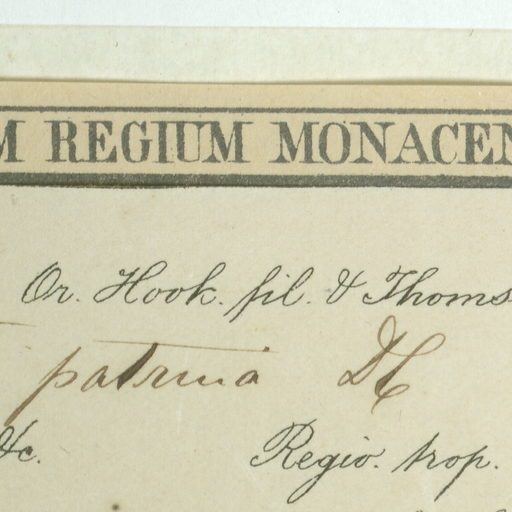 M REGIUM MONACEN
Or. Hook. fil. & Thoms
patrina DC
&c. Regio. trop.